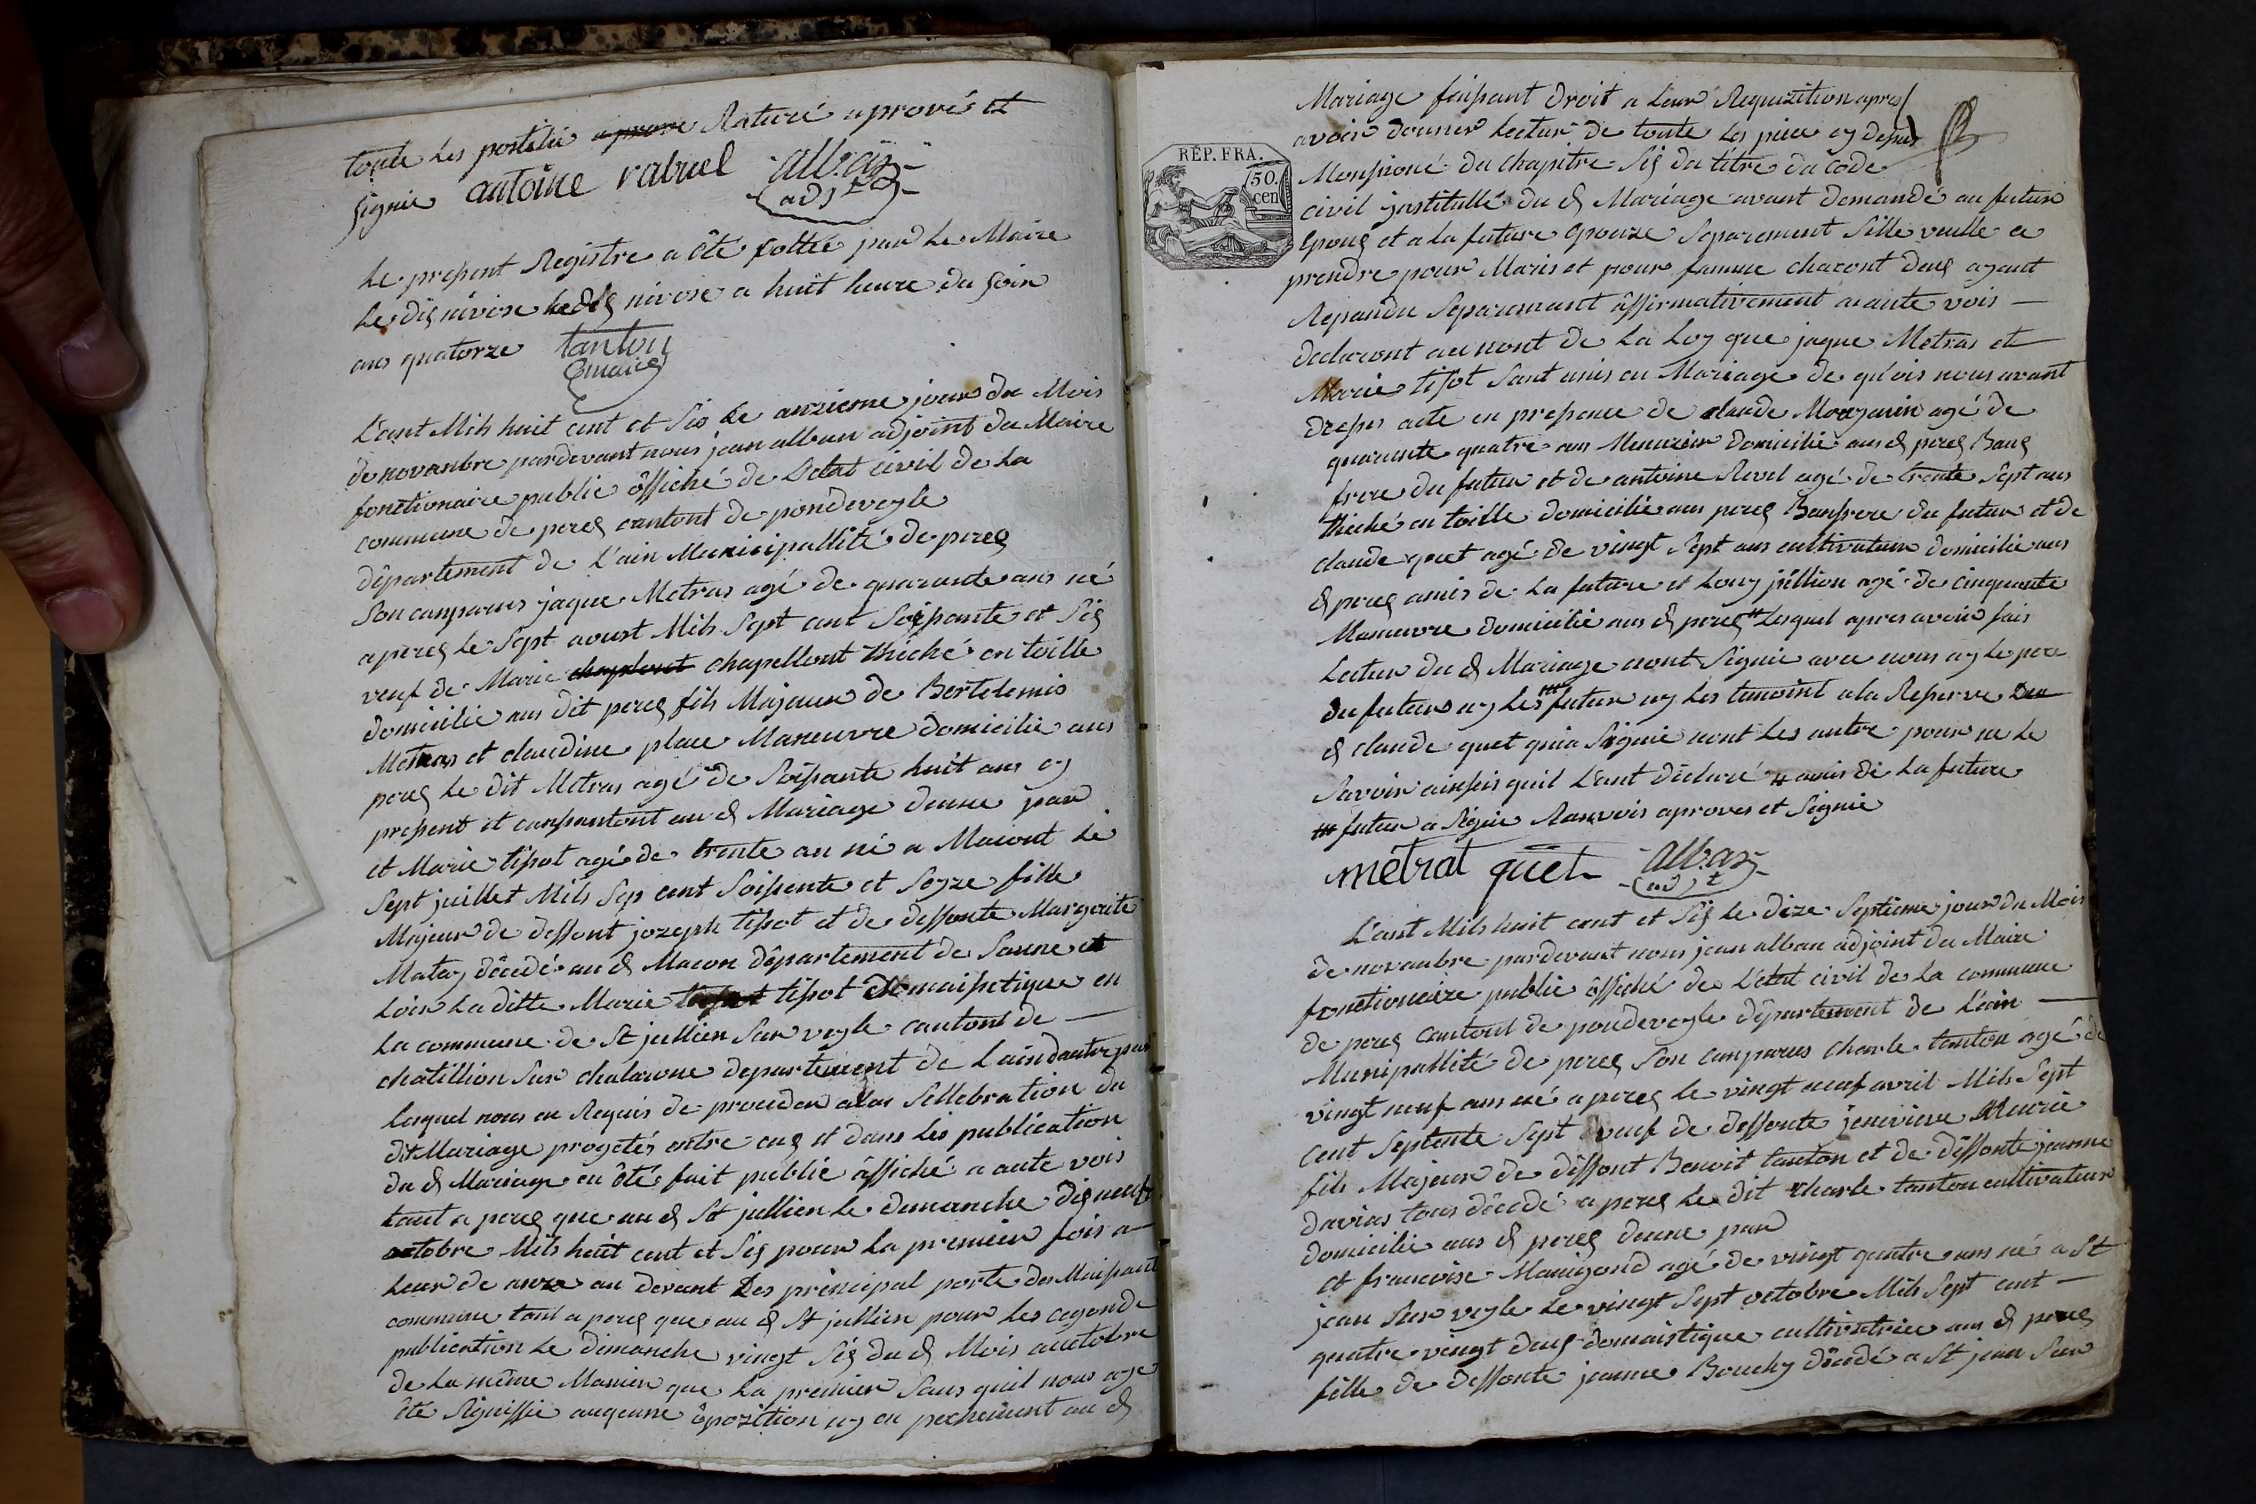 toute les postilie aprove Raturé aprové et
signie antoine rabuel alban
adjt
Le present Registre a été collté par Le Maire
Le dis nivose Le dis nivose a huit heure du soir
ans quatorze tanton
maire
L'ant Mils huit cent et sis Le anzieme jour du Mois
de novanbre pardevant nous jean alban adjoint du Maire
fonctionaire public ôffiché de L'etat civil de La
commune de perez cantont de pondeveyle
département de L'ain Municipallité de perez
Son canparus jaque Metras agé de quarante ans né
a perez le sept avoust Mils Sept cent Soissante et Sis
veuf de Marie chaplout chapellont thiché en toille
domicilie aus dit perez fils Majeur de Bertelemis
Metras et claudine place Maneuvre domicilie aus
perez Le dit Metras agé de Soissante huit ans ay
present et canssantont au d Mariage dune par
et Marie tissot agé de trente an né a Macont Le
Sept juillet Mils Sep cent Soissente et Seyze fille
Majeur de deffont jozeph tissot et de deffonte Margerite
Matay décédé au d Macon département de Saune et
Loir La ditte Marie tissot tissot domaisetique en
La commune de St jullien Sur veyle cantont de —
chatillion Sur chalarone departement de Lain dautre par
Lesquel nous en Requis de proceder a La Sellebration du
dit Mariage progetés entre eus et dans Les publication
du d Mariage en été fait publié âffiché a aute vois
tant a perez que au d St jullien Le demanche dis neuf
octobre Mils huit cent et Sis pour La premiere fois a
heur de anze au devant Des principal porte des Maissant
commune tant a perez que au d St jullien pour Les cegonde
publication Le dimanche vingt Sis du d Mois auctobre
de La même Manier que La premier Sans quil nous aye
été Signiffié augeune ôpozition ay en pechement au d
Mariage faissant droit a Leur Requizition apres
avoir donner Lecture de toute Les piece ay desus
Menssioné du chapitre Sis du titre du Code
civil jnstitullé du d Mariage avant demandé au futur
Epous et a la future Epouze Separement Sille veulle ce
prendre pour Maris et pour famme chacont deus ayant
Repandu Separemant âffirmativement a aute vois —
declaront au nont de La Loy que jaque Metras et
Marie tissot Sant unis en Mariage de quois nous avant
dresser acte en pressence de claude Monjanin agé de
quarante quatre ans Menuzier domicilié aus d perez Baus
frere du futur et de antoine Revel agé de trente Sept ans
thiché en toille domicilié aus perez Bausfrere du futur et de
claude quet agé de vingt Sept ans cultivateur domicilie aus
d perez amis de La future et Louy jullion agé de cinquante
Maneuvre domicilie aus d perez # Lesquel apres avoir fais
Lecteur du d Mariage nont Signie avec nous ay Le pere
du futur ay Les ### futur ay Les temoint a la Reserve Du
d claude quet quia Signié nont Les autre pour ne Le
Savoir ainssis quil L'ant déclaré # amis de La future
### futur a Signie Ranvois aproves et Signie
métrat quet alban
adjt
L'ant Mils huit cent et Sis Le dize Septieme jour du Mois
de novanbre pardevant nous jean alban adjoint du Maire
fonctionaire public ôffiché de L'etat civil de La commune
de perez cantont de pondeveyle département de L'ain —
Munipallité de perez Son canparus charle tanton agé de
vingt neuf ans né a perez le vingt neuf avril Mils Sept
cent Septente Sept veuf de deffonte jenevieve Mairie
fils Majeur de deffont Benoit tanton et de deffonte jeanne
davias tous décédé a perez Le dit charle tanton cultivateur
domicilie aus d perez dune par
et francoise Manigand agé de vingt quatre ans né a St
jean Sur veyle Le vingt Sept octobre Mils Sept cent —
quatre vingt deus domaistique cultivatrice aus d perez
fille de deffonte jeanne Bouchy décédé a St jean Sur
RÉP. FRA.
50.
cen